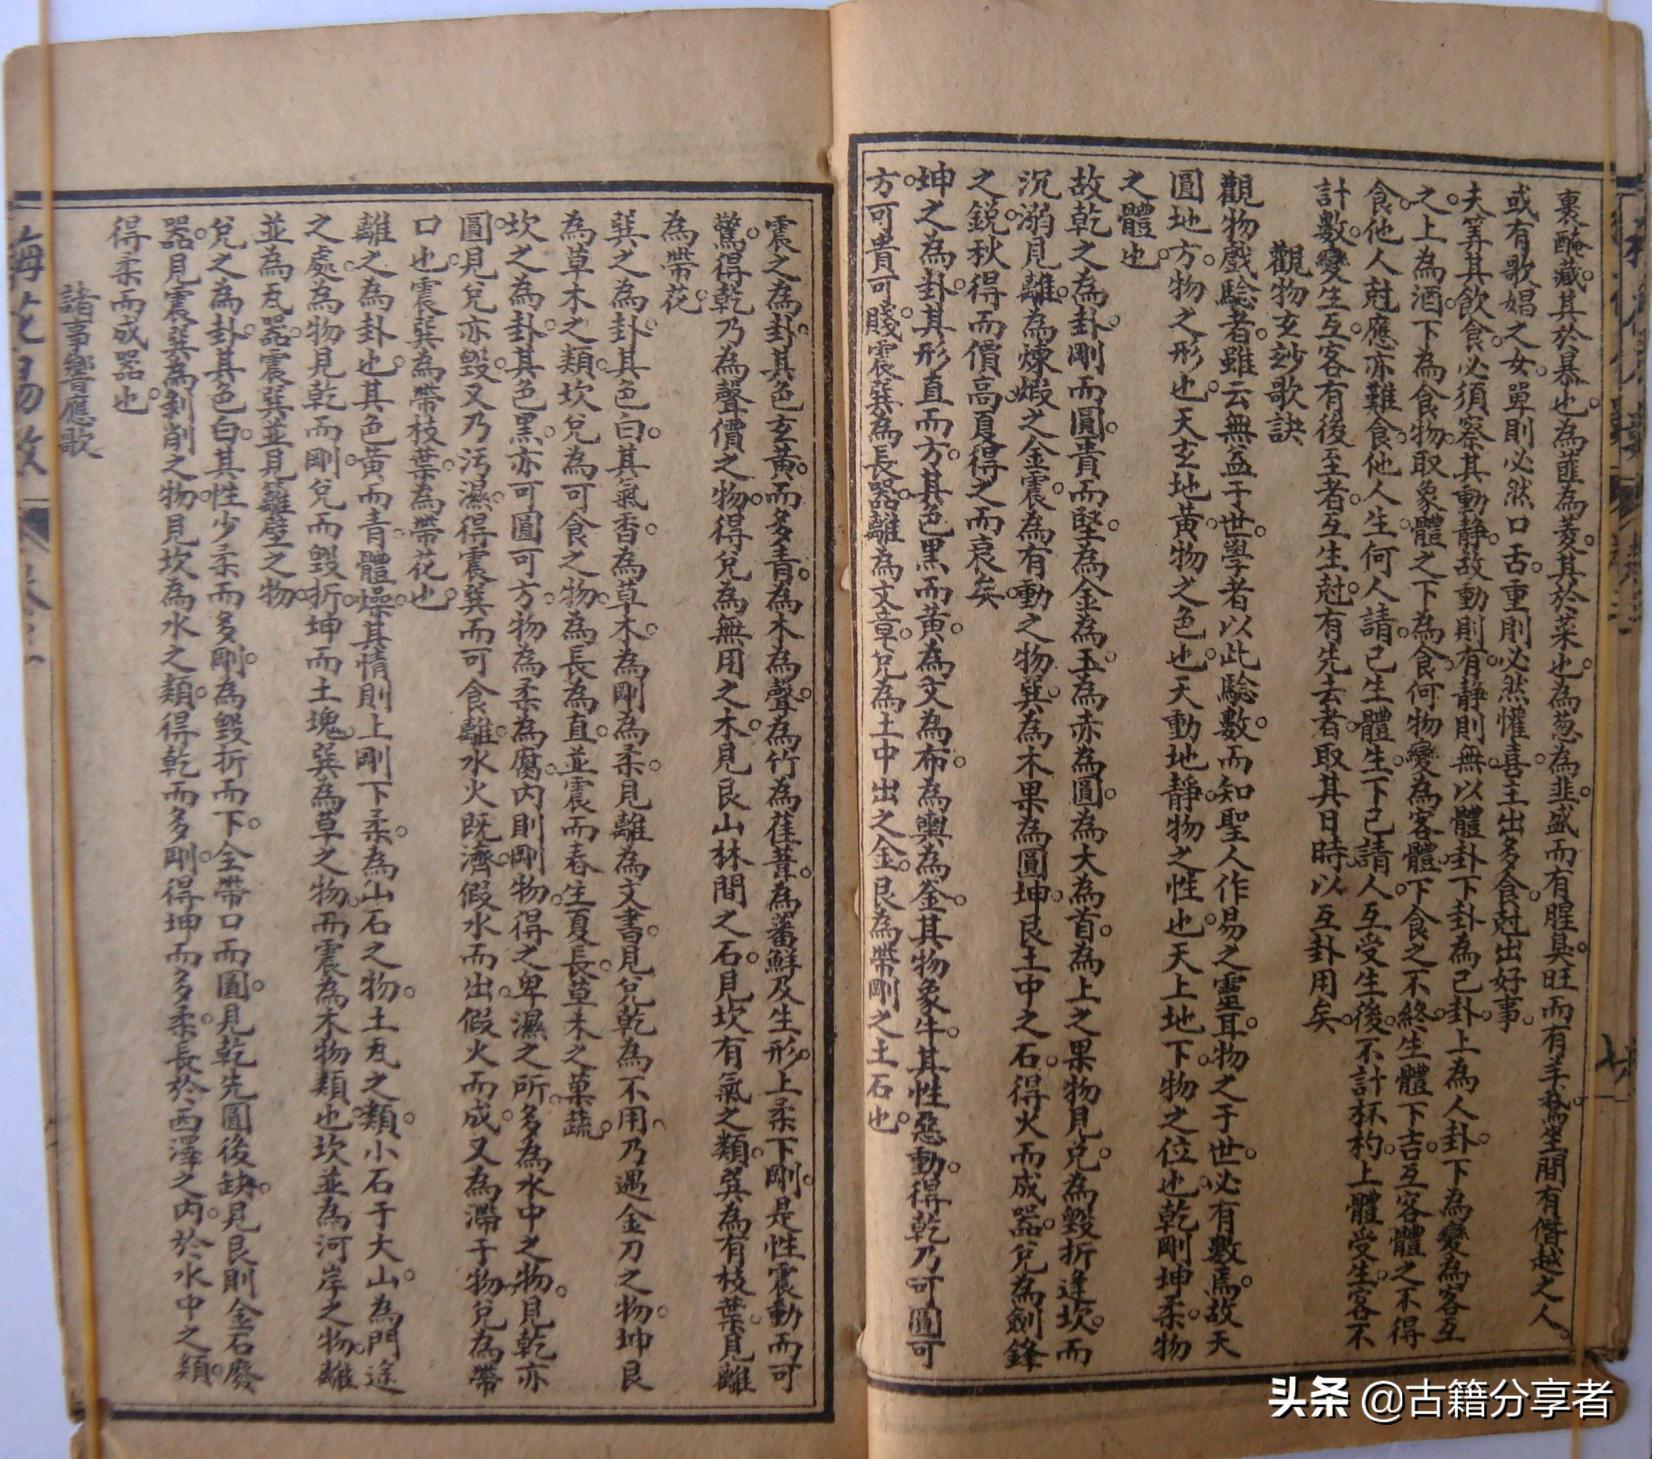 裏醃藏其於暴也為蓶為菱其於菜也為葱為韭盛而有腥臭旺而有羊鵞坐間有僭越之人
或有歌娼之女單則必然口舌重則必然懽喜主出多食尅出好事
夫筭其飲食必須察其動静故動則有静則無以體卦下卦為己卦上為人卦下為變為客互
之上為酒下為食物取象體之下為食何物變為客體下食之不終生體下吉互客體之不得
食他人尅應亦難食他人生何人請己生體生下己請人互受生後不計杯杓上體受生客不
計數變生互客有後至者互生尅有先去者取其日時以互卦用矣
觀物玄玅歌訣
觀物戲驗者雖云無益于世學者以此驗數而知聖人作易之靈耳物之于世必有數焉故天
圓地方物之形也天玄地黃物之色也天動地靜物之性也天上地下物之位也乾剛坤柔物
之體也
故乾之為卦剛而圓貴而堅為金為玉為赤為圓為大為首為上之果物見兌為毀折逢坎而
沉溺見離為煉煅之金震為有動之物巽為木果為圓坤艮土中之石得火而成器兌為劍鋒
之鋭秋得而價高夏得之而衰矣
坤之為卦其形直而方其色黑而黃為文為布為輿為釜其物象牛其性惡動得乾乃可圓可
方可貴可賤震巽為長器離為文章兌為土中出之金艮為帶剛之土石也
震之為卦其色玄黃而多青為木為聲為竹為萑葦為蕃鮮及生形上柔下剛是性震動而可
驚得乾乃為聲價之物得兌為無用之木見艮山林間之石見坎有氣之類巽為有枝葉見離
為帶花
巽之為卦其色白其氣香為草木為剛為柔見離為文書見兌乾為不用乃遇金刀之物坤艮
為草木之類坎兌為可食之物為長為直並震而春生夏長草木之菓蔬
坎之為卦其色黑亦可圓可方物為柔為腐内則剛物得之卑濕之所多為水中之物見乾亦
圓見兌亦毀又乃汚濕得震巽而可食離水火既濟假水而出假火而成又為滯于物兌為帶
口也震巽為帶枝葉為帶花也
離之為卦也其色黃而青體燥其情則上剛下柔為山石之物土瓦之類小石于大山為門途
之處為物見乾而剛兌而毀折坤而土塊巽為草之物而震為木物類也坎並為河岸之物離
並為瓦器震巽並見籬壁之物
兌之為卦其色白其性少柔而多剛為毀折而下全帶口而圓見乾先圓後缺見艮則金石廢
器見震巽為剝削之物見坎為水之類得乾而多剛得坤而多柔長於西澤之内於水中之類
得柔而成器也
諸事響應歌
梅花易數
头条 @古籍分享者